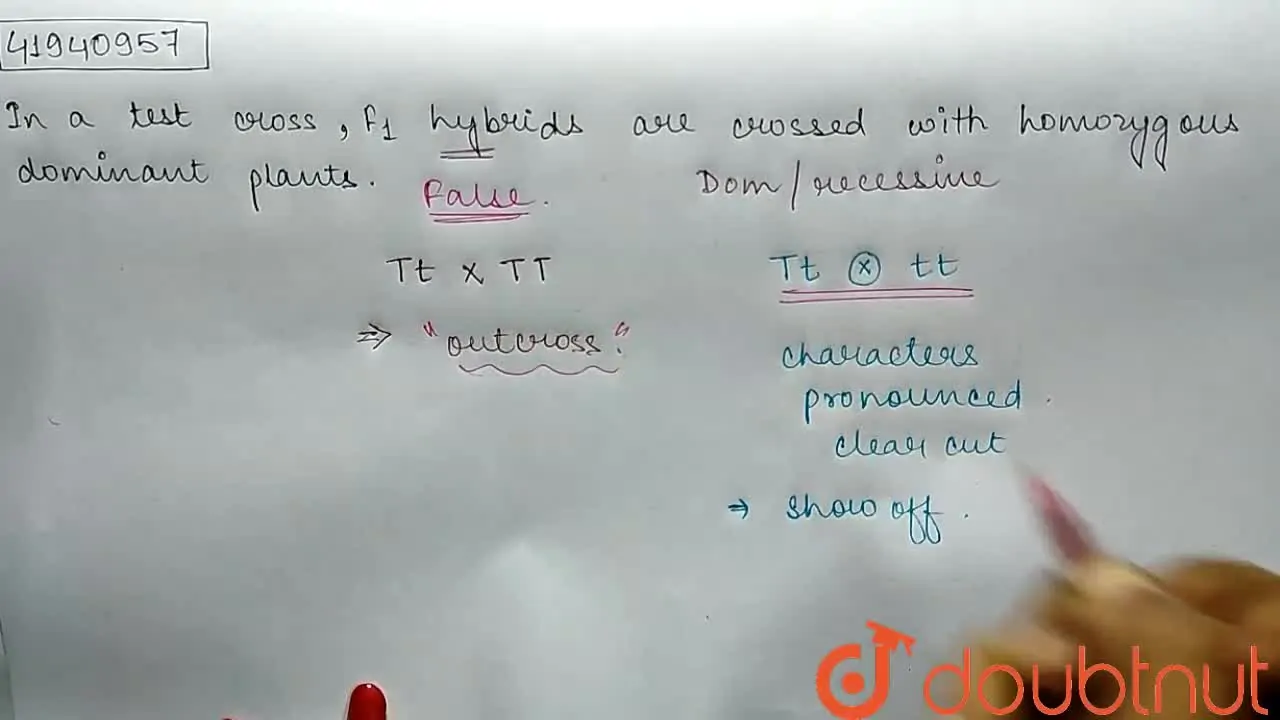 41940957
In a test cross, F1 hybrids are crossed with homozygous
dominant plants. False. Dom/recessive
Tt x TT
Tt ⊗ tt
⇒ "outcross".
characters
pronounced.
clear cut
⇒ show off.
doubtnut